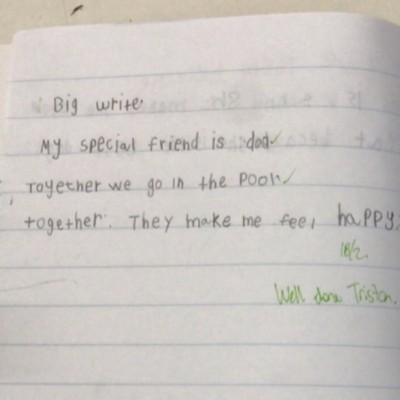 Big write
My special friend is dad
Together we go in the pool
together. They make me feel happy.
18/2.
Well done Tristan.